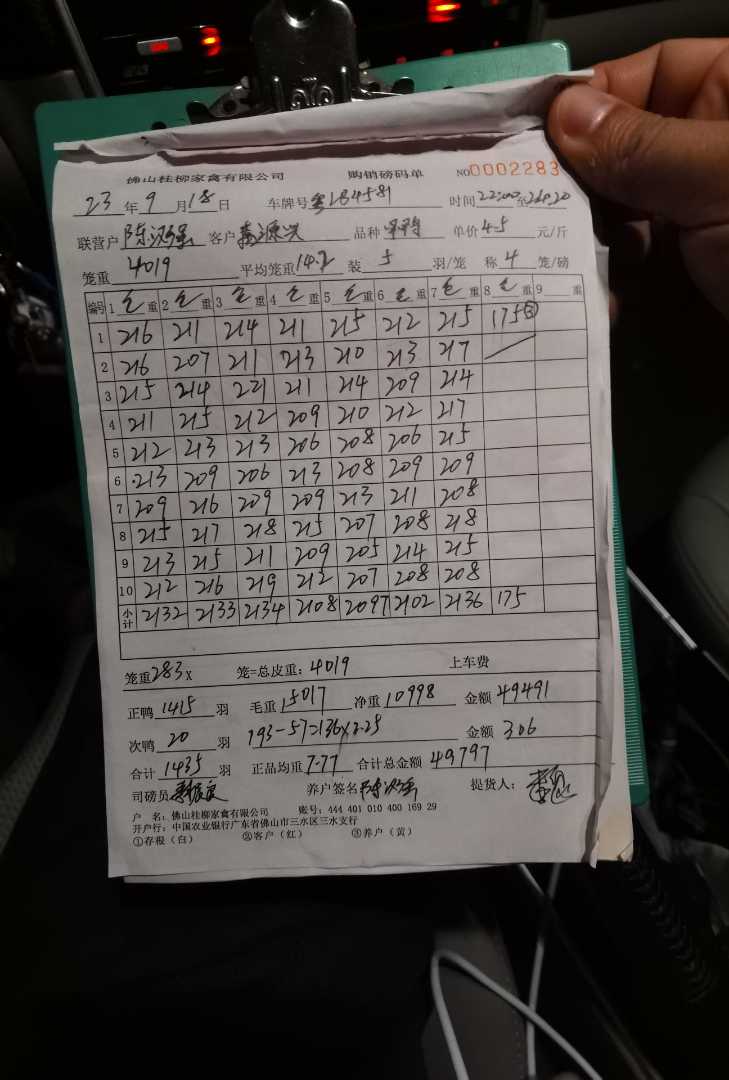 佛山桂柳家禽有限公司 购销磅码单 NO0002283
23 年 9 月 18 日 车牌号 粤 LB4581 时间 22:00 至
联营户 陈鸿 客户 源兴 品种 单价 4.5 元/斤
笼重 4019 平均笼重 14.2 装 5 羽/笼 称 4 笼/磅
编号 1 毛 重 2 毛 重 3 毛 重 4 毛 重 5 毛 重 6 毛 重 7 毛 重 8 毛 重 9 重
1 216 211 214 211 215 212 215 175③
2 216 207 211 213 210 213 217
3 215 214 221 211 214 209 214
4 211 215 212 209 210 212 217
5 212 213 213 206 208 206 215
6 213 209 206 213 208 209 209
7 209 216 209 209 213 211 208
8 215 217 218 215 207 208 218
9 213 215 211 209 205 214 215
10 212 216 219 212 207 208 208
小计 2132 2133 2134 2108 2097 2102 2136 175
笼重 283 x 笼=总皮重: 4019 上车费
正鸭 1415 羽 毛重 15017 净重 10998 金额 49491
次鸭 20 羽 193-57=136×2.25 金额 306
合计 1435 羽 正品均重 7.77 合计总金额 49797
司磅员 养户签名 陈鸿 提货人:
户 名: 佛山桂柳家禽有限公司 账号: 444 401 010 400 169 29
开户行: 中国农业银行广东省佛山市三水区三水支行
①存根（白） ②客户（红） ③养户（黄）